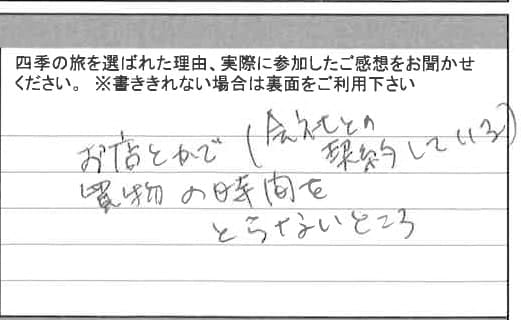 四季の旅を選ばれた理由、実際に参加したご感想をお聞かせ
ください。 ※書ききれない場合は裏面をご利用下さい
お店とかで(会社との
契約している)
買物の時間を
とらせないところ